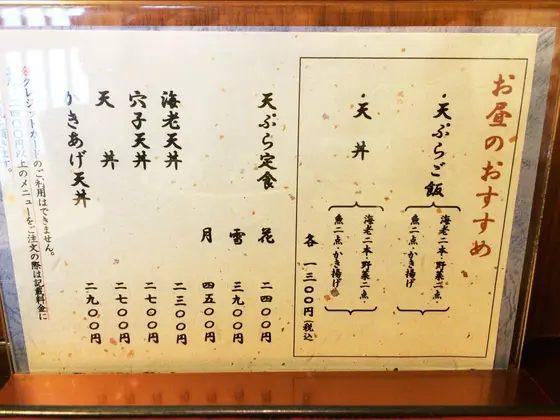 お昼のおすすめ
・天ぷらご飯
海老二本・野菜二点
魚二点・かき揚げ
・天丼
海老二本・野菜二点
魚二点・かき揚げ
各 一三〇〇円(税込
天ぷら定食 花 二四〇〇円
雪 三九〇〇円
月 四五〇〇円
海老天丼 二三〇〇円
穴子天丼 二七〇〇円
天丼 二七〇〇円
かきあげ天丼 二九〇〇円
※クレジットカードのご利用はできません。
二四〇〇円以上のメニューをご注文の際は記載料金に